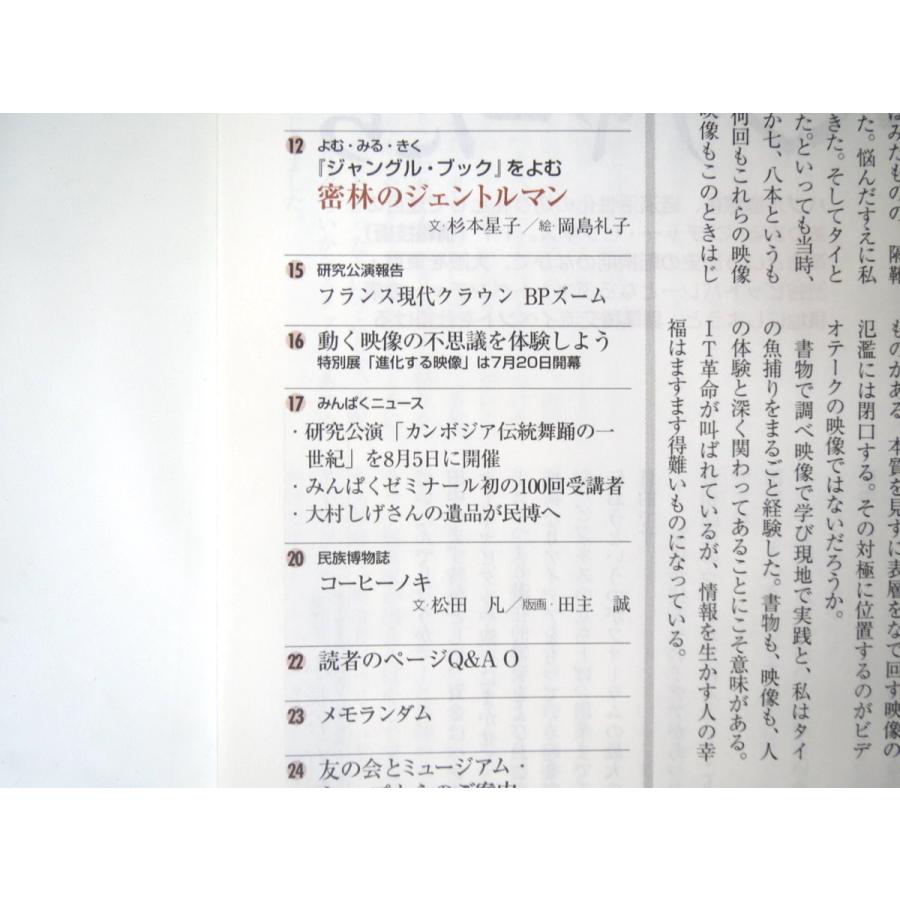 12 よむ・みる・きく
『ジャングル・ブック』をよむ
密林のジェントルマン
文・杉本星子／絵・岡島礼子
15 研究公演報告
フランス現代クラウン BPズーム
16 動く映像の不思議を体験しよう
特別展「進化する映像」は7月20日開幕
17 みんぱくニュース
・研究公演「カンボジア伝統舞踊の一
世紀」を8月5日に開催
・みんぱくゼミナール初の100回受講者
・大村しげさんの遺品が民博へ
20 民族博物誌
コーヒーノキ
文・松田 凡／版画・田主 誠
22 読者のページQ&A O
23 メモランダム
24 友の会とミュージアム・
はみたものの、隔靴
た。悩んだすえに私
きた。そしてタイと
た。といっても当時、
か七、八本というも
何回もこれらの映像
映像もこのときはじ
ものがある。本質を見ずに表層をなで回す映像の
氾濫には閉口する。その対極に位置するのがビデ
オテークの映像ではないだろうか。
書物で調べ映像で学び現地で実践と、私はタイ
の魚捕りをまるごと経験した。書物も、映像も、人
の体験と深く関わってあることにこそ意味がある。
ＩＴ革命が叫ばれているが、情報を生かす人の幸
福はますます得難いものになっている。